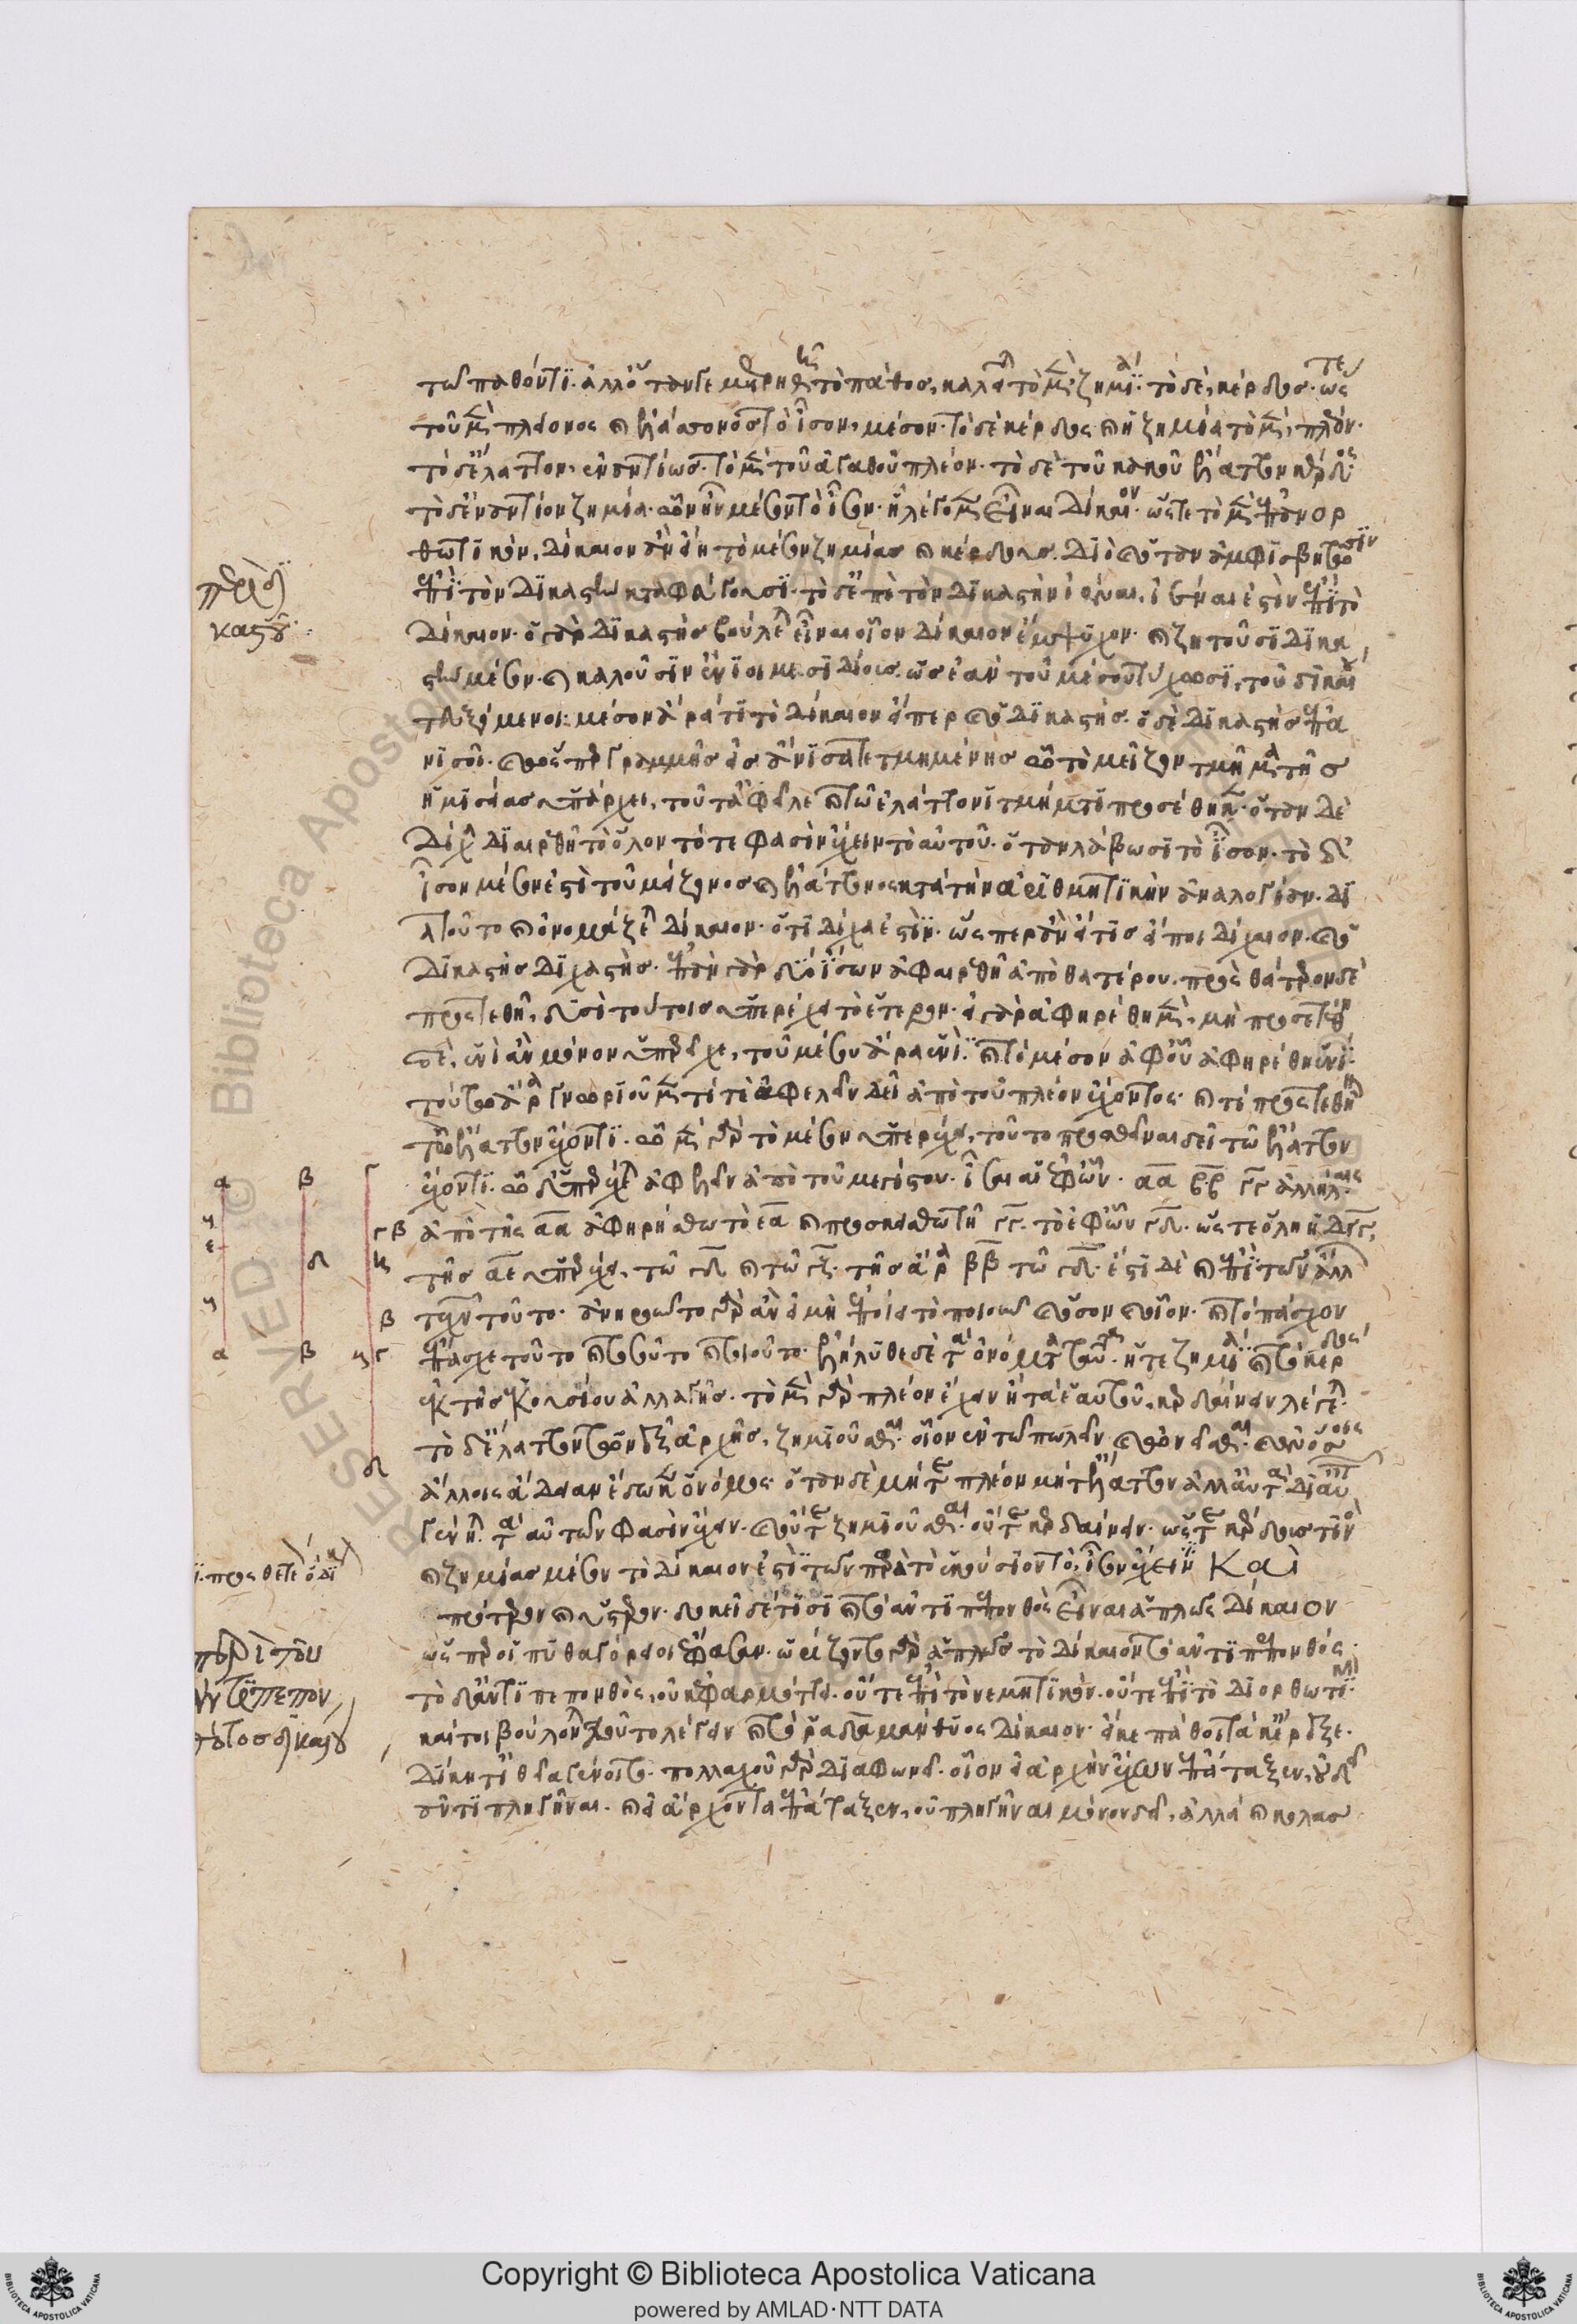 τῶ παθόντι. ἀλλ' ὅταν γε μετρηθῆ τὸ πάθος, καλεῖται τὸ μὲν ζημία. τὸ δὲ, κέρδος. ὥστε
τοῦ μὲν πλείονος καὶ ἐλάττονος τὸ ἴσον, μέσον. τὸ δὲ κέρδος καὶ ἡ ζημία τὸ μὲν, πλέον.
τὸ δ' ἔλαττον, ἐναντίως. τὸ μὲν τοῦ ἀγαθοῦ πλέον. τὸ δὲ τοῦ κακοῦ ἔλαττον κέρδος.
τὸ δ' ἐναντίον ζημία. ὧν ἦν μέσον τὸ ἴσον. ὃ λέγομεν εἶναι δίκαιον. ὥστε τὸ μὲν ἐπανορ
θωτικὸν, δίκαιον ἂν εἴη τὸ μέσον ζημίας καὶ κέρδους. διὸ καὶ ὅταν ἀμφισβητῶσιν
ἐπὶ τὸν δικαστὴν καταφεύγουσι. τὸ δ' ἐπὶ τὸν δικαστὴν ἰέναι, ἰέναι ἐστὶν ἐπὶ τὸ
δίκαιον. ὁ γὰρ δικαστὴς βούλεται εἶναι οἷον δίκαιον ἔμψυχον. καὶ ζητοῦσι δικα
στὴν μέσον. καὶ καλοῦσιν ἔνιοι μεσιδίους. ὡς ἐὰν τοῦ μέσου τύχωσι, τοῦ δικαίου
τευξόμενοι. μέσον ἄρα τι τὸ δίκαιον εἴπερ καὶ ὁ δικαστής. ὁ δὲ δικαστὴς ἐπα
νισοῖ. καὶ ὥσπερ γραμμῆς εἰς ἄνισα τετμημένης ὧ τὸ μεῖζον τμῆμα τῆς
ἡμισείας ὑπερέχει, τοῦτ' ἀφεῖλε καὶ τῶ ἐλάττονι τμήματι προσέθηκεν. ὅταν δὲ
δίχα διαιρεθῆ τὸ ὅλον τότε φασὶν ἔχειν τὸ αὑτοῦ. ὅταν λάβωσι τὸ ἴσον. τὸ δ'
ἴσον μέσον ἐστὶ τοῦ μείζονος καὶ ἐλάττονος κατὰ τὴν ἀριθμητικὴν ἀναλογίαν. δι
ὰ τοῦτο καὶ ὀνομάζεται δίκαιον. ὅτι δίχα ἐστὶν. ὥσπερ ἂν εἴ τις εἴποι δίχαιον. καὶ ὁ
δικαστὴς διχαστής. ἐπὰν γὰρ δύο ἴσων ἀφαιρεθῆ ἀπὸ θατέρου. πρὸς θάτερον δὲ
προστεθῆ, δυσὶ τούτοις ὑπερέχει τὸ ἕτερον. εἰ γὰρ ἀφηρέθη μὲν, μὴ προσετέθη
δὲ, ἑνὶ ἂν μόνον ὑπερεῖχε, τοῦ μέσου ἄρα ἑνὶ. καὶ τὸ μέσον ἀφ' οὗ ἀφηρέθη ἑνί.
τούτω ἄρα γνωριοῦμεν τί τε ἀφελεῖν δεῖ ἀπὸ τοῦ πλέον ἔχοντος. καὶ τί προστεθῆναι
τῶ ἔλαττον ἔχοντι. ὧ μὲν γὰρ τὸ μέσον ὑπερέχει, τοῦτο προσθεῖναι δεῖ τῶ ἔλαττον
ἔχοντι. ὧ δ' ὑπερέχεται ἀφελεῖν ἀπὸ τοῦ μεγίστου. ἴσαι αἱ ἐφ' ὧν. αα ββ γγ ἀλλήλαις
ἀπὸ τῆς αα ἀφῃρήσθω τὸ εα καὶ προσκείσθω τῆ γγ. τὸ ἐφ' ὧν γδ. ὥστε ὅλη ἡ δγγ,
τῆς αε ὑπερέχει, τῶ γδ καὶ τῶ γζ. τῆς ἄρα ββ τῶ γδ. ἔστι δὲ καὶ ἐπὶ τῶν ἄλλων
τεχνῶν τοῦτο. ἀνηροῦντο γὰρ ἂν εἰ μὴ ἐποίει τὸ ποιοῦν καὶ ὅσον καὶ οἷον. καὶ τὸ πάσχον
ἔπασχε τοῦτο καὶ τοσοῦτο καὶ τοιοῦτο. ἐλήλυθε δὲ τὰ ὀνόματα ταῦτα. ἥ τε ζημία καὶ τὸ κέρδος
ἐκ τῆς ἑκουσίου ἀλλαγῆς. τὸ μὲν γὰρ πλέον ἔχειν ἢ τὰ ἑαυτοῦ, κερδαίνειν λέγεται.
τὸ δ' ἔλαττον τῶν ἐξ ἀρχῆς, ζημιοῦσθαι. οἷον ἐν τῶ πωλεῖν καὶ ὠνεῖσθαι. καὶ ἐν ὅσοις
ἄλλοις ἄδειαν ἔδωκεν ὁ νόμος. ὅταν δὲ μήτε πλέον μήτ' ἔλαττον ἀλλ' αὐτὰ δι' αὐτῶν
γένηται τὰ αὑτῶν φασὶν ἔχειν. καὶ οὔτε ζημιοῦσθαι. οὔτε κερδαίνειν. ὥστε κέρδους τινὸς
καὶ ζημίας μέσον τὸ δίκαιον ἐστὶ τῶν παρὰ τὸ ἑκούσιον τὸ ἴσον ἔχειν καὶ
πρότερον καὶ ὕστερον. δοκεῖ δέ τισι καὶ τὸ ἀντιπεπονθὸς εἶναι ἁπλῶς δίκαιον
ὥσπερ οἱ πυθαγόρειοι ἔφασαν. ὡρίζοντο γὰρ ἁπλῶς τὸ δίκαιον τὸ ἀντιπεπονθός.
τὸ δ' ἀντιπεπονθὸς, οὐκ ἐφαρμόττει. οὔτε ἐπὶ τὸ νεμητικόν. οὔτε ἐπὶ τὸ διορθωτικόν.
καίτοι βούλονται τοῦτο λέγειν καὶ τὸ ῥαδαμάνθυος δίκαιον. εἴ κε πάθοι τά κ' ἔρεξε.
δίκη τ' ἰθεῖα γένοιτο. πολλαχοῦ γὰρ διαφωνεῖ. οἷον εἰ ἀρχὴν ἔχων ἐπάταξεν, οὐ δεῖ
ἀντιπληγῆναι. καὶ εἰ ἄρχοντα ἐπάταξεν, οὐ πληγῆναι μόνον δεῖ, ἀλλὰ καὶ κολασ
περὶ δι
καστοῦ
περὶ τοῦ
ἀντιπεπον
θότος δικαίου